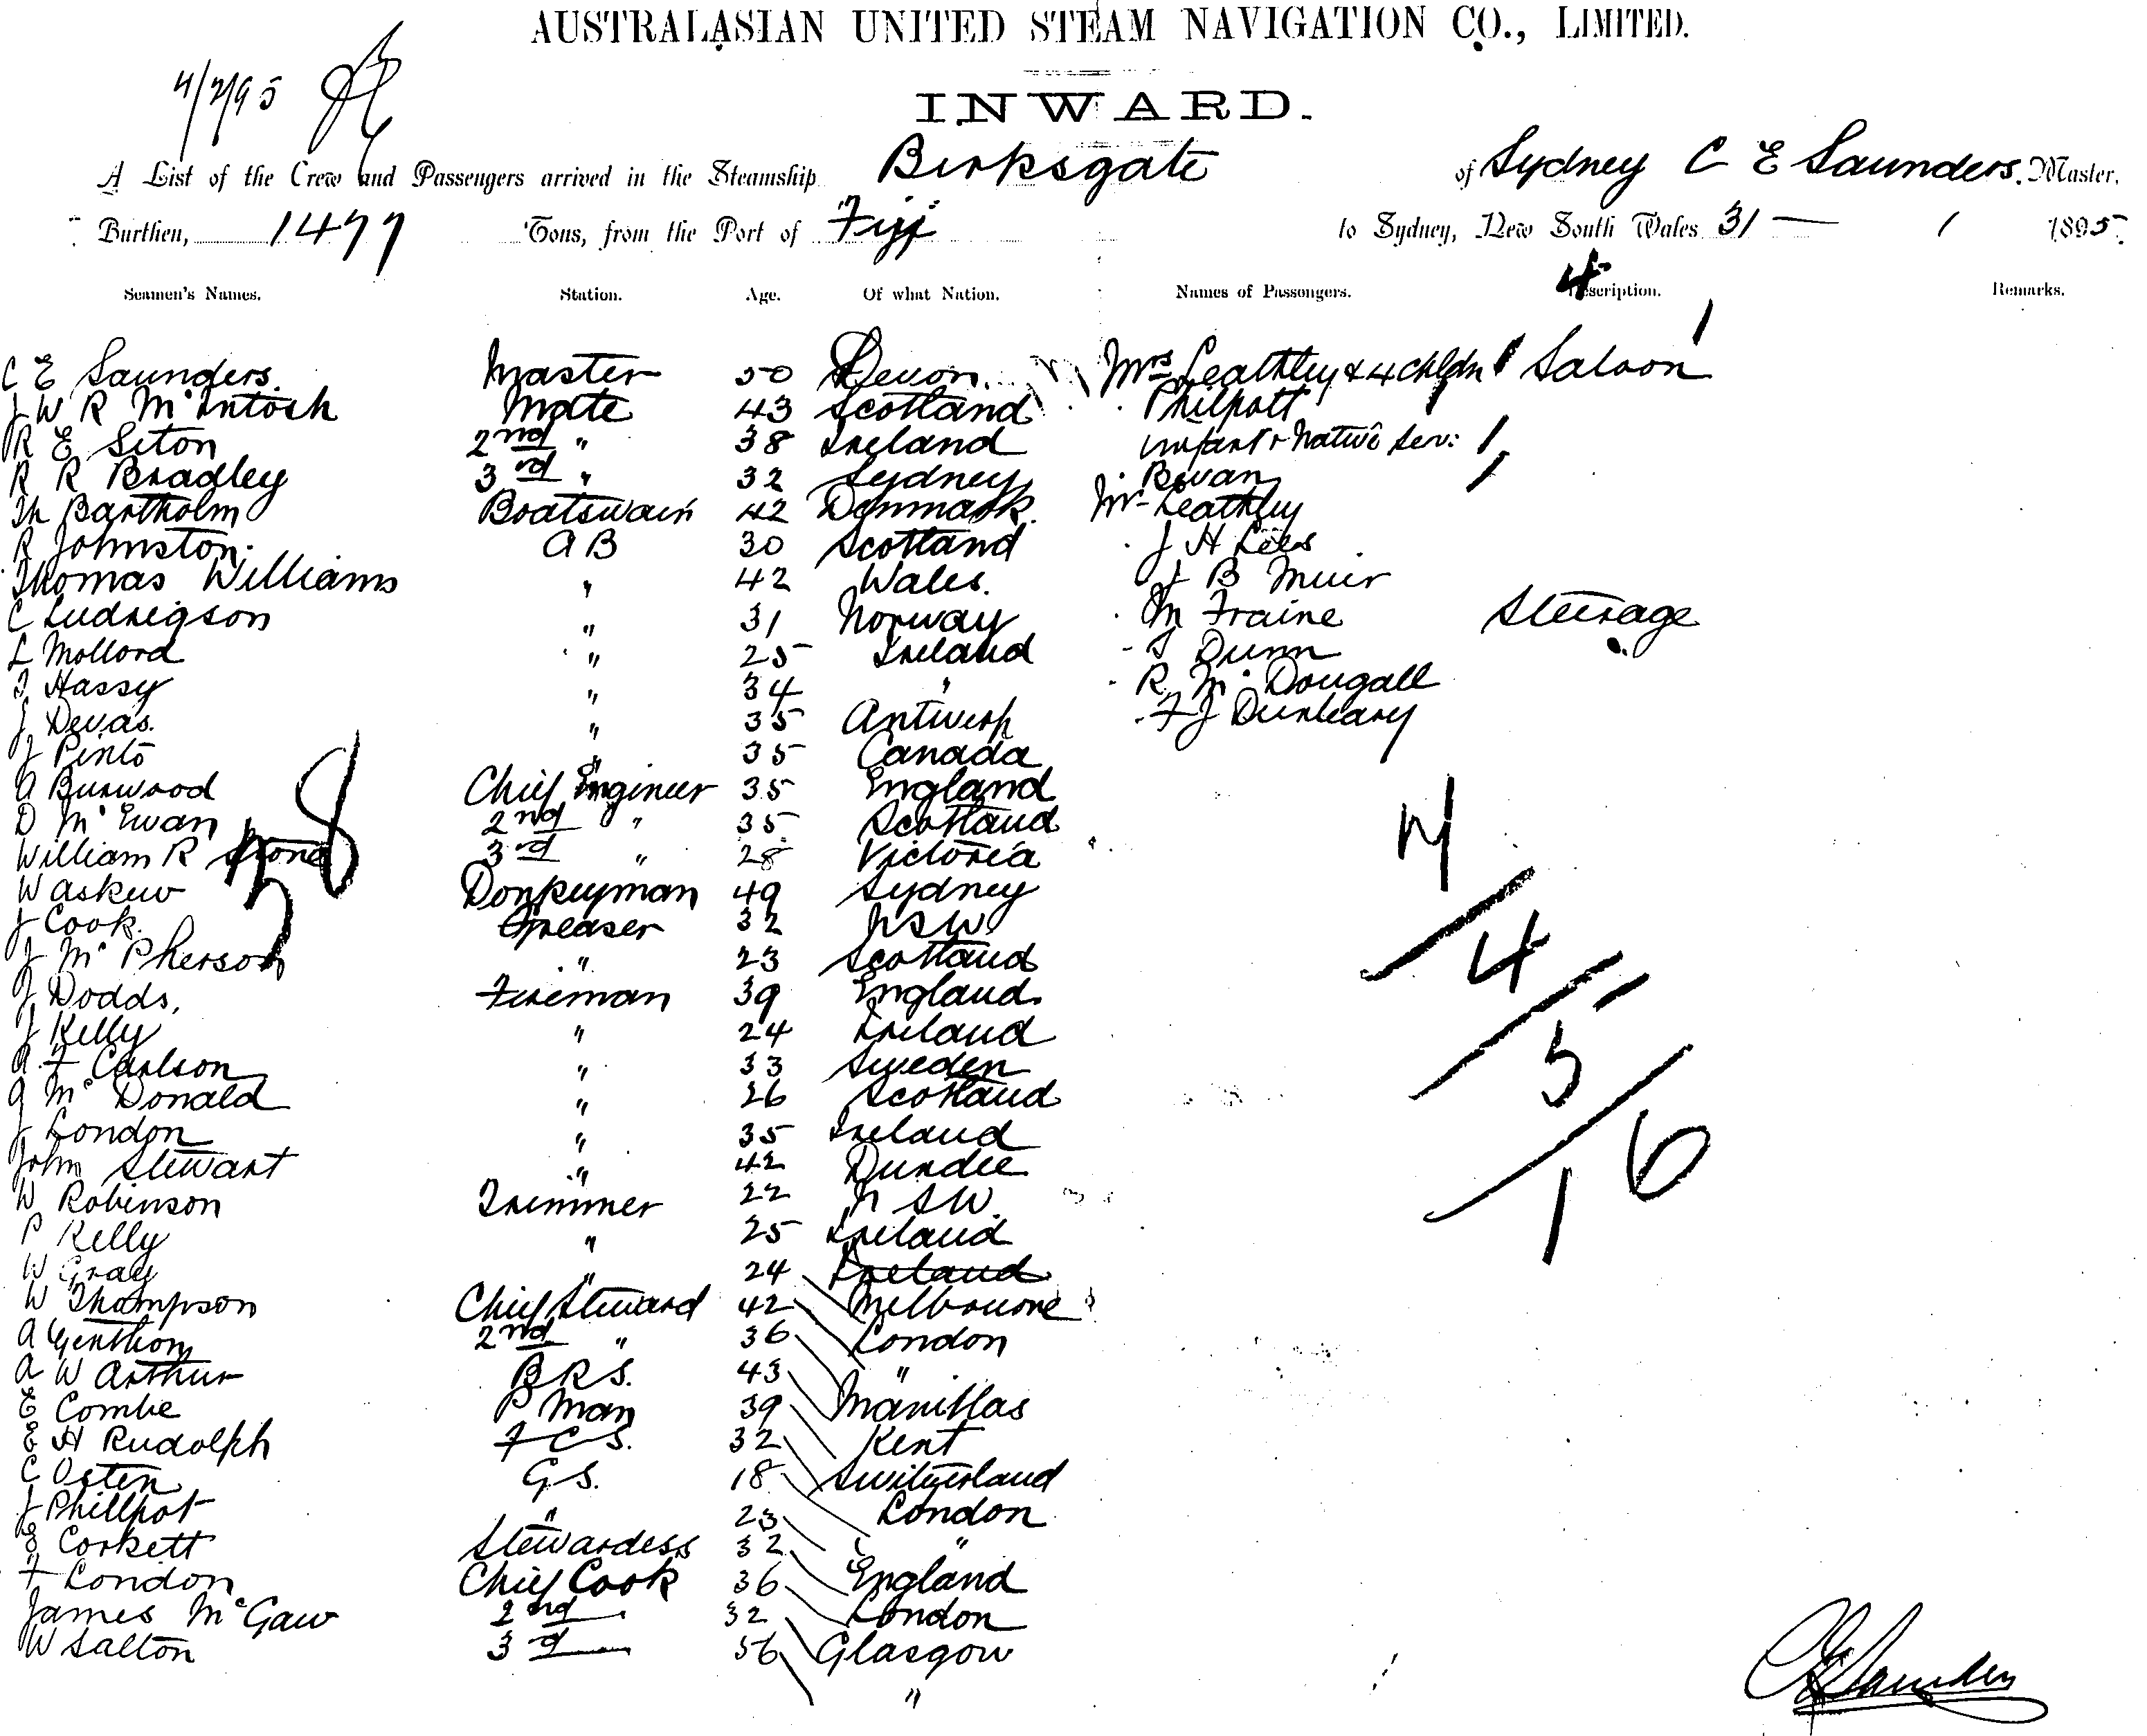 AUSTRALASIAN UNITED STEAM NAVIGATION CO., LIMITED.
4/2/95
INWARD.
A List of the Crew and Passengers arrived in the Steamship Birksgate of Sydney C E Saunders. Master.
Burthen, 1477 Tons, from the Port of Fiji to Sydney, New South Wales 31 — 1 1895.
4
Seamen's Names. Station. Age. Of what Nation. Names of Passengers. Description. Remarks.
C E Saunders. Master 50 Devon. Mrs Leathley & 4 Chldn 1 Saloon 1
J W R McIntosh Mate 43 Scotland " Philpott
R E Seton 2nd " 38 Ireland infant & Native Serv: 1
R R Bradley 3rd " 32 Sydney " Bevan 1
Th Bartholm Boatswain 42 Denmark. Mr Leathley
R Johnston. A B 30 Scotland " J H Lees
Thomas Williams " 42 Wales. J B Muir
C Ludwigson " 31 Norway " M Fraine Steerage
L Mollord " 25 Ireland " T Dunn
J Hassy " 34 " " R McDougall
J Devas. " 35 Antwerp " F J Dunleavy
J Pinto " 35 Canada
A Burwood Chief Engineer 35 England
D McEwan 2nd " 35 Scotland
William R Stone 3rd " 28 Victoria
W Askew Donkeyman 49 Sydney
J Cook. Greaser 32 NSW
J McPherson " 23 Scotland
J Dodds, Fireman 39 England.
J Kelly " 24 Ireland
A F Carlson " 33 Sweden
J McDonald " 26 Scotland
J London " 35 Ireland
John Stewart " 42 Dundee
W Robinson Trimmer 22 N S W.
P Kelly " 25 Ireland
W Gray " 24 Ireland
W Thompson Chief Steward 42 Melbourne
A Genthon 2nd " 36 London
A W Arthur B.R.S. 43 "
E Combe P Man 39 Manillas
E H Rudolph F C S. 32 Kent
C Osten G S. 18 Switzerland
J Phillpot " 23 London
E Corkett Stewardess 32 "
F London Chief Cook 36 England
James McGaw 2nd 32 London
W Salton 3d 56 Glasgow
"
38
4
4
5
16
C E Saunders